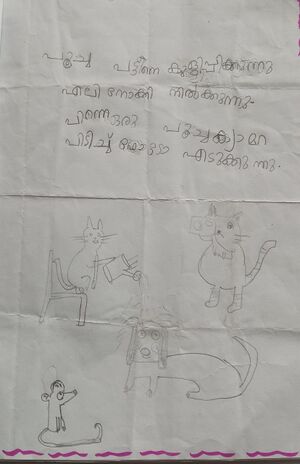 പൂച്ച പട്ടീനെ കുളിപ്പിക്കുന്നു
എലി നോക്കി നിൽക്കുന്നു.
പിന്നെ ഒരു പൂച്ച ക്യാമറ
പിടിച്ച് ഫോട്ടോ എടുക്കുന്നു.